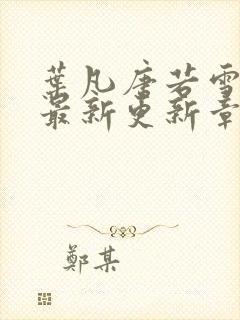 葉凡唐若雪
最新更新章
鄭某